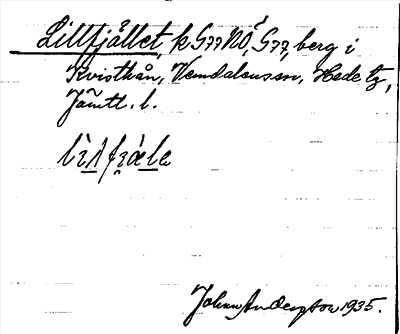 Lillfjället, k G77NÖ, G77, berg i
Kvisthån, Vemdalens sn, Hede tg,
Jämtl. l.
Johan Anderson 1935.